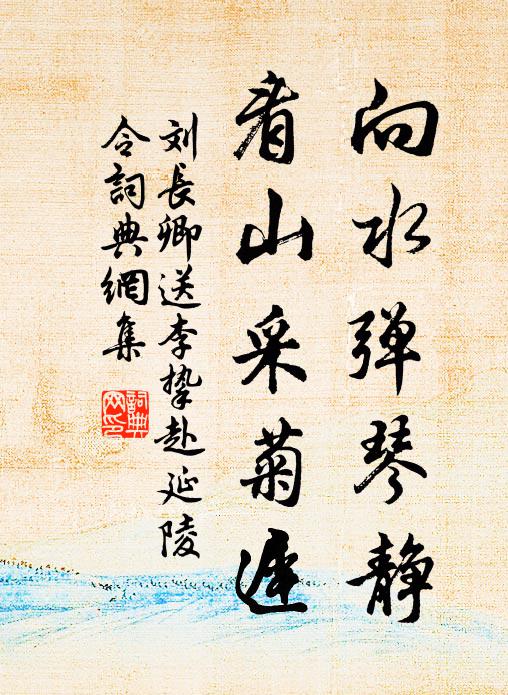 向水弹琴静
看山采菊迟
刘長卿送李挚赴延陵
令詞典網集
詞典
网印